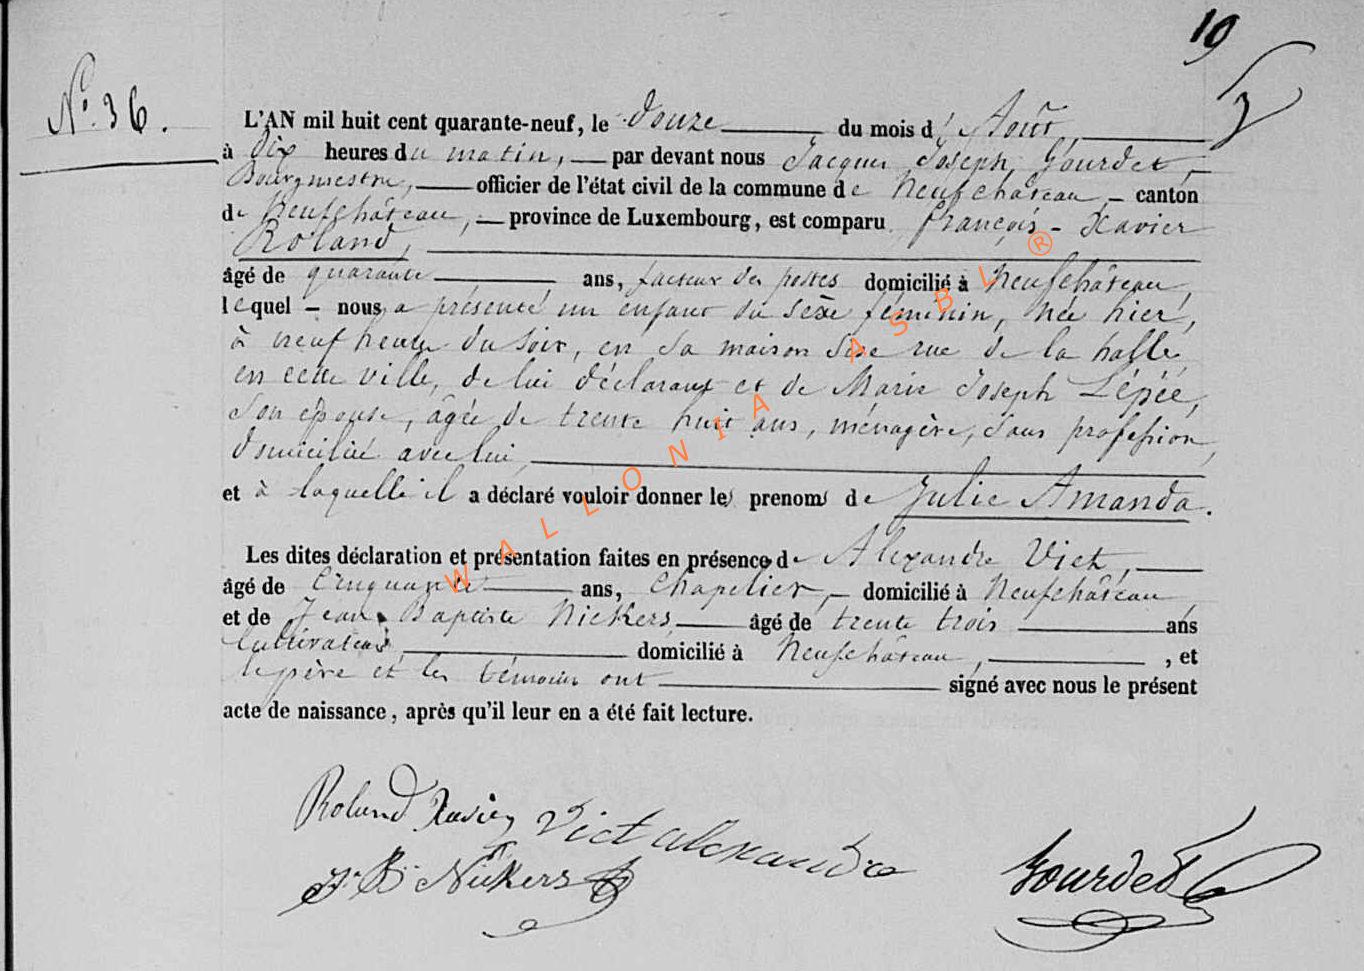 19
N° 36.
L'AN mil huit cent quarante-neuf, le douze du mois d' Août,
à dix heures du matin, — par devant nous Jacques Joseph Gourdet,
Bourgmestre, — officier de l'état civil de la commune de Neufchâteau, — canton
de Neufchâteau, — province de Luxembourg, est comparu François-Xavier
Roland,
âgé de quarante ans, facteur des postes domicilié à Neufchâteau,
lequel — nous a présenté un enfant du sexe féminin, née hier,
à neuf heures du soir, en sa maison sise rue de la halle
en cette ville, de lui déclarant et de Marie Joseph Lépée,
son épouse, âgée de trente huit ans, ménagère, sans profession,
domiciliée avec lui,
et à laquelle il a déclaré vouloir donner les prenoms de Julie Amanda.
Les dites déclaration et présentation faites en présence de Alexandre Vict,
âgé de Cinquante ans, Chapelier, — domicilié à Neufchâteau,
et de Jean Baptiste Nickers âgé de trente trois ans
Cultivateur domicilié à Neufchâteau, , et
le père et les témoins ont signé avec nous le présent
acte de naissance, après qu'il leur en a été fait lecture.
Roland Xavier Vict alexandre
J. B. Nickers Gourdet
WALLONIA ASBL ®